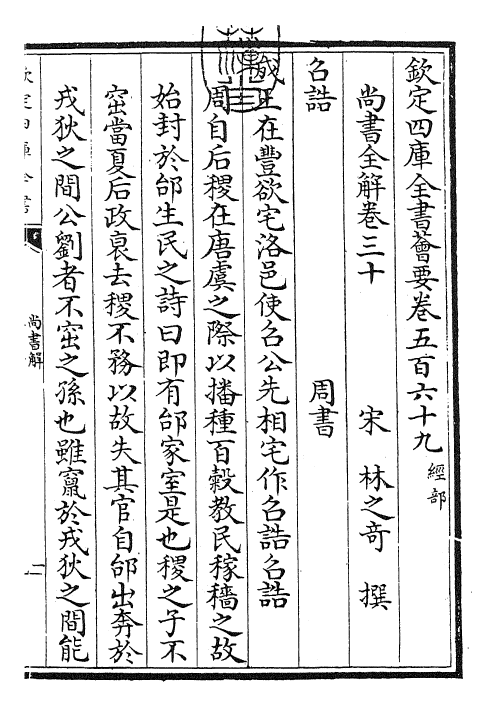 欽定四庫全書薈要卷五百六十九 經部
尚書全解卷三十 宋 林之奇 撰
召誥 周書
成王在豐欲宅洛邑使召公先相宅作召誥召誥
周自后稷在唐虞之際以播種百穀教民稼穡之故
始封於邰生民之詩曰即有邰家室是也稷之子不
窋當夏后政衰去稷不務以故失其官自邰出奔於
戎狄之間公劉者不窋之孫也雖竄於戎狄之間能
欽定四庫全書
尚書解